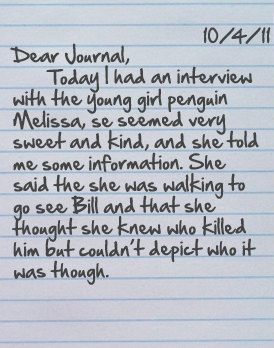 10/4/11
Dear Journal,
Today I had an interview
with the young girl penguin
Melissa, se seemed very
sweet and kind, and she told
me some information. She
said the she was walking to
go see Bill and that she
thought she knew who killed
him but couldn't depict who it
was though.